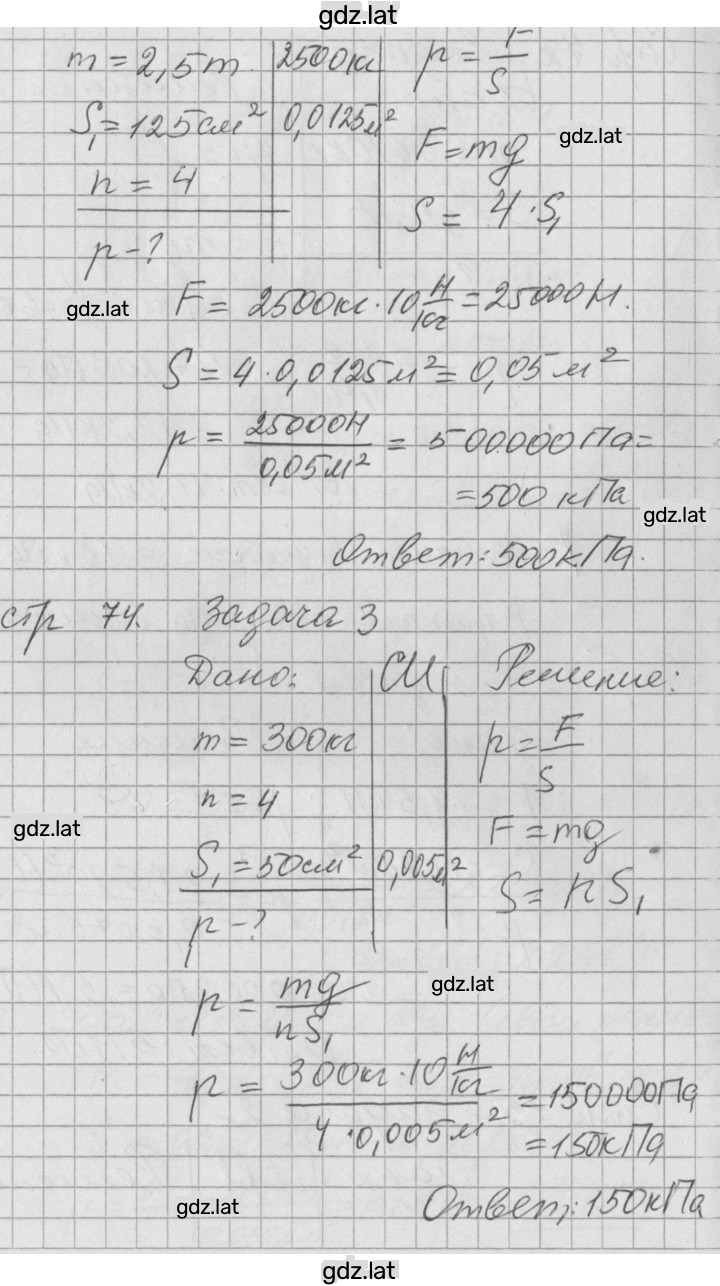 gdz.lat
m = 2,5т. 2500кг p = F/S
S₁ = 125см² 0,0125м² gdz.lat
n = 4 F = mg
p - ? S = 4 · S₁
gdz.lat F = 2500кг · 10 Н/кг = 25000Н.
S = 4 · 0,0125м² = 0,05м²
p = 25000Н/0,05м² = 500000Па =
= 500 кПа
gdz.lat
Ответ: 500кПа.
стр 74. Задача 3
Дано: СИ Решение:
m = 300кг p = F/S
n = 4
gdz.lat F = mg
S₁ = 50см² 0,005м² S = n S₁
p - ?
p = mg/nS₁ gdz.lat
p = 300кг · 10 Н/кг / 4 · 0,005м² = 150000Па
= 150кПа
gdz.lat Ответ: 150кПа
gdz.lat